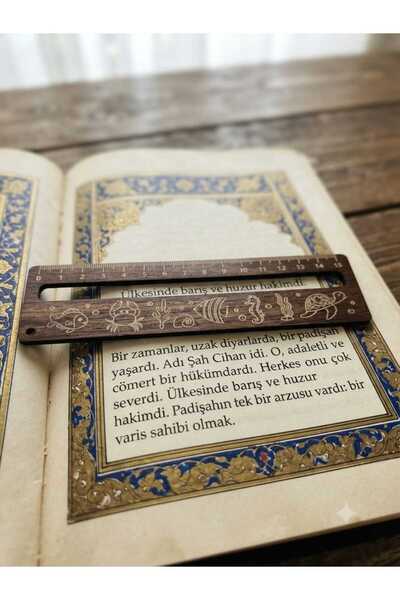 0 1 2 3 4 5 6 7 8 9 10 11 12 13 14 15
Ülkesinde barış ve huzur hakimdi.
Bir zamanlar, uzak diyarlarda, bir padişah
yaşardı. Adı Şah Cihan idi. O, adaletli ve
cömert bir hükümdardı. Herkes onu çok
severdi. Ülkesinde barış ve huzur
hakimdi. Padişahın tek bir arzusu vardı: bir
varis sahibi olmak.